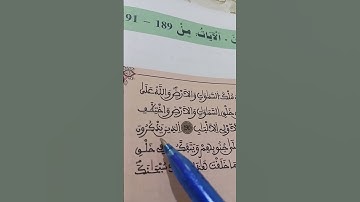 الآيَاتُ: مِنْ 189 – 91
مُلْكُ السَّمَٰوَٰتِ وَالْأَرْضِ وَاللَّهُ عَلَىٰ
خَلْقِ السَّمَٰوَٰتِ وَالْأَرْضِ وَاخْتِلَٰفِ
لِأُوْلِي الْأَلْبَٰبِ الَّذِينَ يَذْكُرُونَ
جُنُوبِهِمْ وَيَتَفَكَّرُونَ فِي خَلْقِ
مَا خَلَقْتَ هَٰذَا سُبْحَٰنَكَ